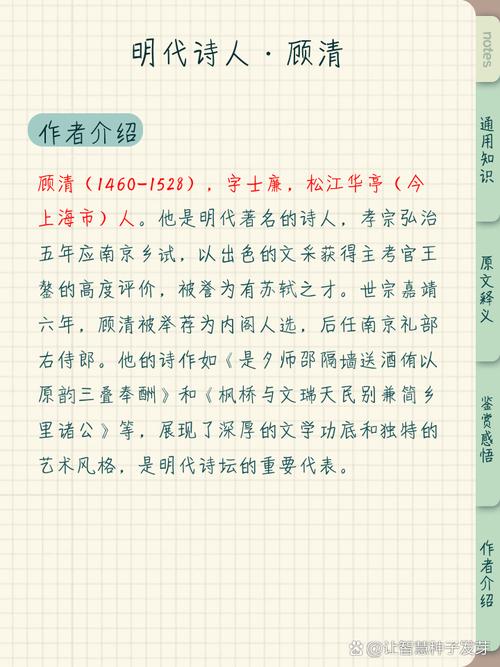 明代诗人·顾清
notes
作者介绍
顾清（1460-1528），字士廉，松江华亭（今
上海市）人。他是明代著名的诗人，孝宗弘治
五年应南京乡试，以出色的文采获得主考官王
鏊的高度评价，被誉为有苏轼之才。世宗嘉靖
六年，顾清被举荐为内阁人选，后任南京礼部
右侍郎。他的诗作如《是夕师邵隔墙送酒侑以
原韵三叠奉酬》和《枫桥与文瑞天民别兼简乡
里诸公》等，展现了深厚的文学功底和独特的
艺术风格，是明代诗坛的重要代表。
通用知识
原文释义
鉴赏感悟
作者介绍
@让智慧种子发芽